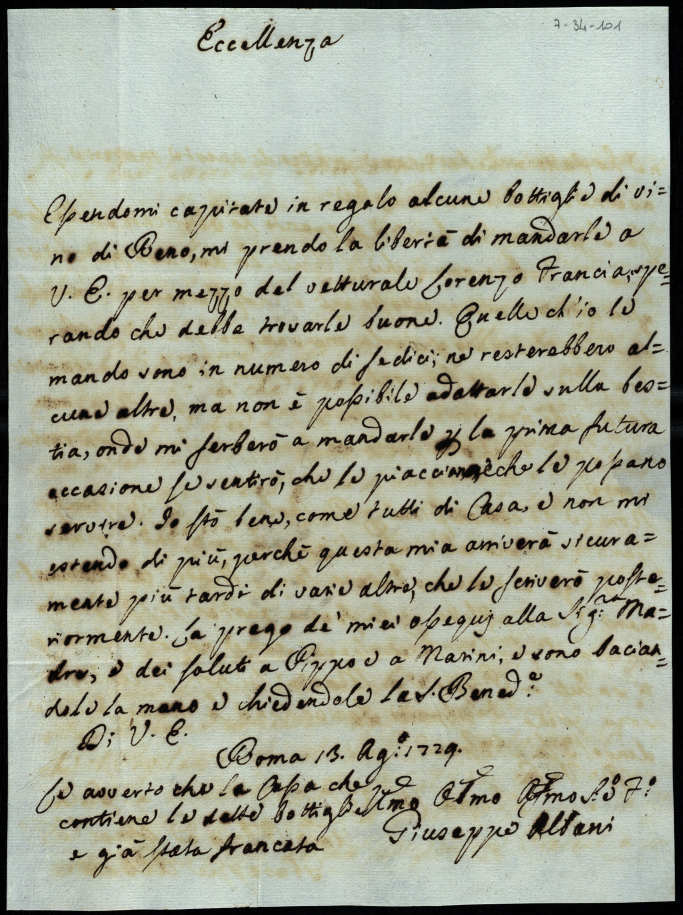 7-34-101
Eccellenza
Essendomi capitate in regalo alcune bottiglie di vi=
no di Reno, mi prendo la libertà di mandarle a
V. E. per mezzo del vetturale Lorenzo Francia, spe=
rando che debba trovarle buone. Quelle ch'io le
mando sono in numero di sedici; ne resterebbero al=
cune altre, ma non è possibile adattarle sulla bes=
tia, onde mi serberò a mandarle la prima futura
occasione se sentirò, che le piacciano, e che le possano
servire. Io stò bene, come tutti di Casa, e non mi
estendo di più, perchè questa mia arriverà sicura=
mente più tardi di varie altre, che le scriverò poste=
riormente. La prego de' miei ossequj alla Sig.ra Ma=
dre, e dei saluti a Pippo e a Marini, e sono bacian=
dole la mano e chiedendole la S. Bened.e
Di V. E.
Roma 13. Ag.o 1729.
Le avverto che la Cassa che
contiene le dette bottiglie
è già stata francata
Umo Dmo Omo S.e F.o
Giuseppe Albani